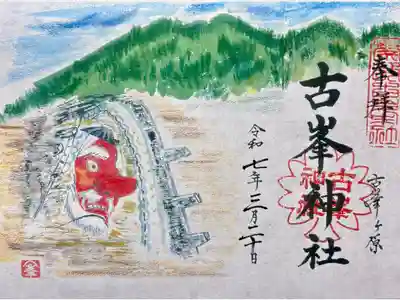 奉拝
古峯ヶ原
古峯神社
令和七年三月二十日